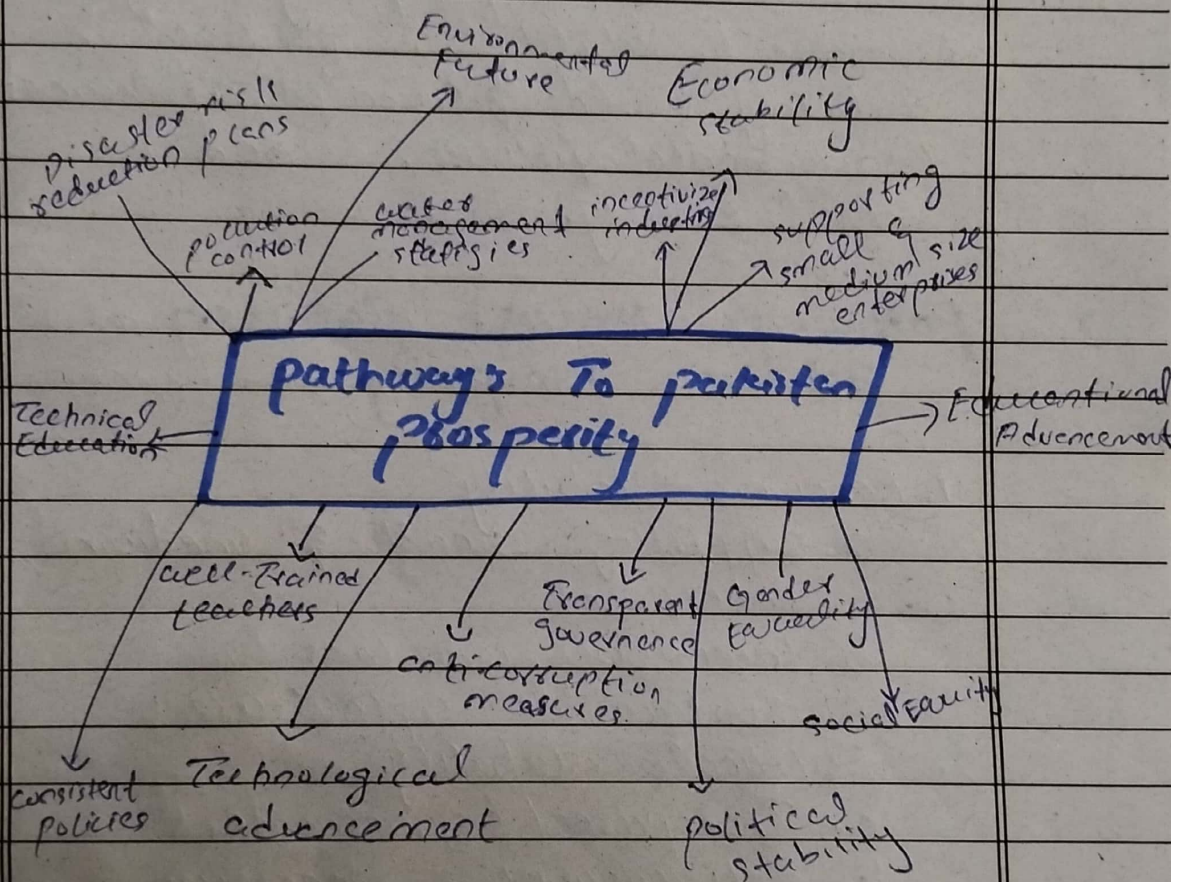 Environmental
Future
Economic
stability
Disaster risk
reduction plans
pollution
control
water
management
statigies
incentivize
industing
supporting
small &
medium size
enterprises
pathways To pakistan
prosperity
Technical
Education
Educantional
Advencement
well-Trained
teachers
Transparent
governence
Gender
Equality
anti-corruption
measures.
social Equity
Technological
advencement
consistent
policies
political
stability